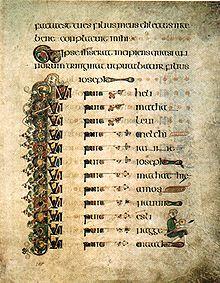 facta est tu es filius meus dilectus inte
bene conplacuit mihi
Et ipse ihs erat incipiens quasi an
norum triginta ut putabatur filius
ioseph
Qui fuit heli
Qui fuit mathat
Qui fuit leui
Qui fuit melchi
Qui fuit
Qui fuit ioseph
Qui fuit
Qui fuit amos
Qui fuit nauum
Qui fuit esli
Qui fuit nagge
Qui fuit maath